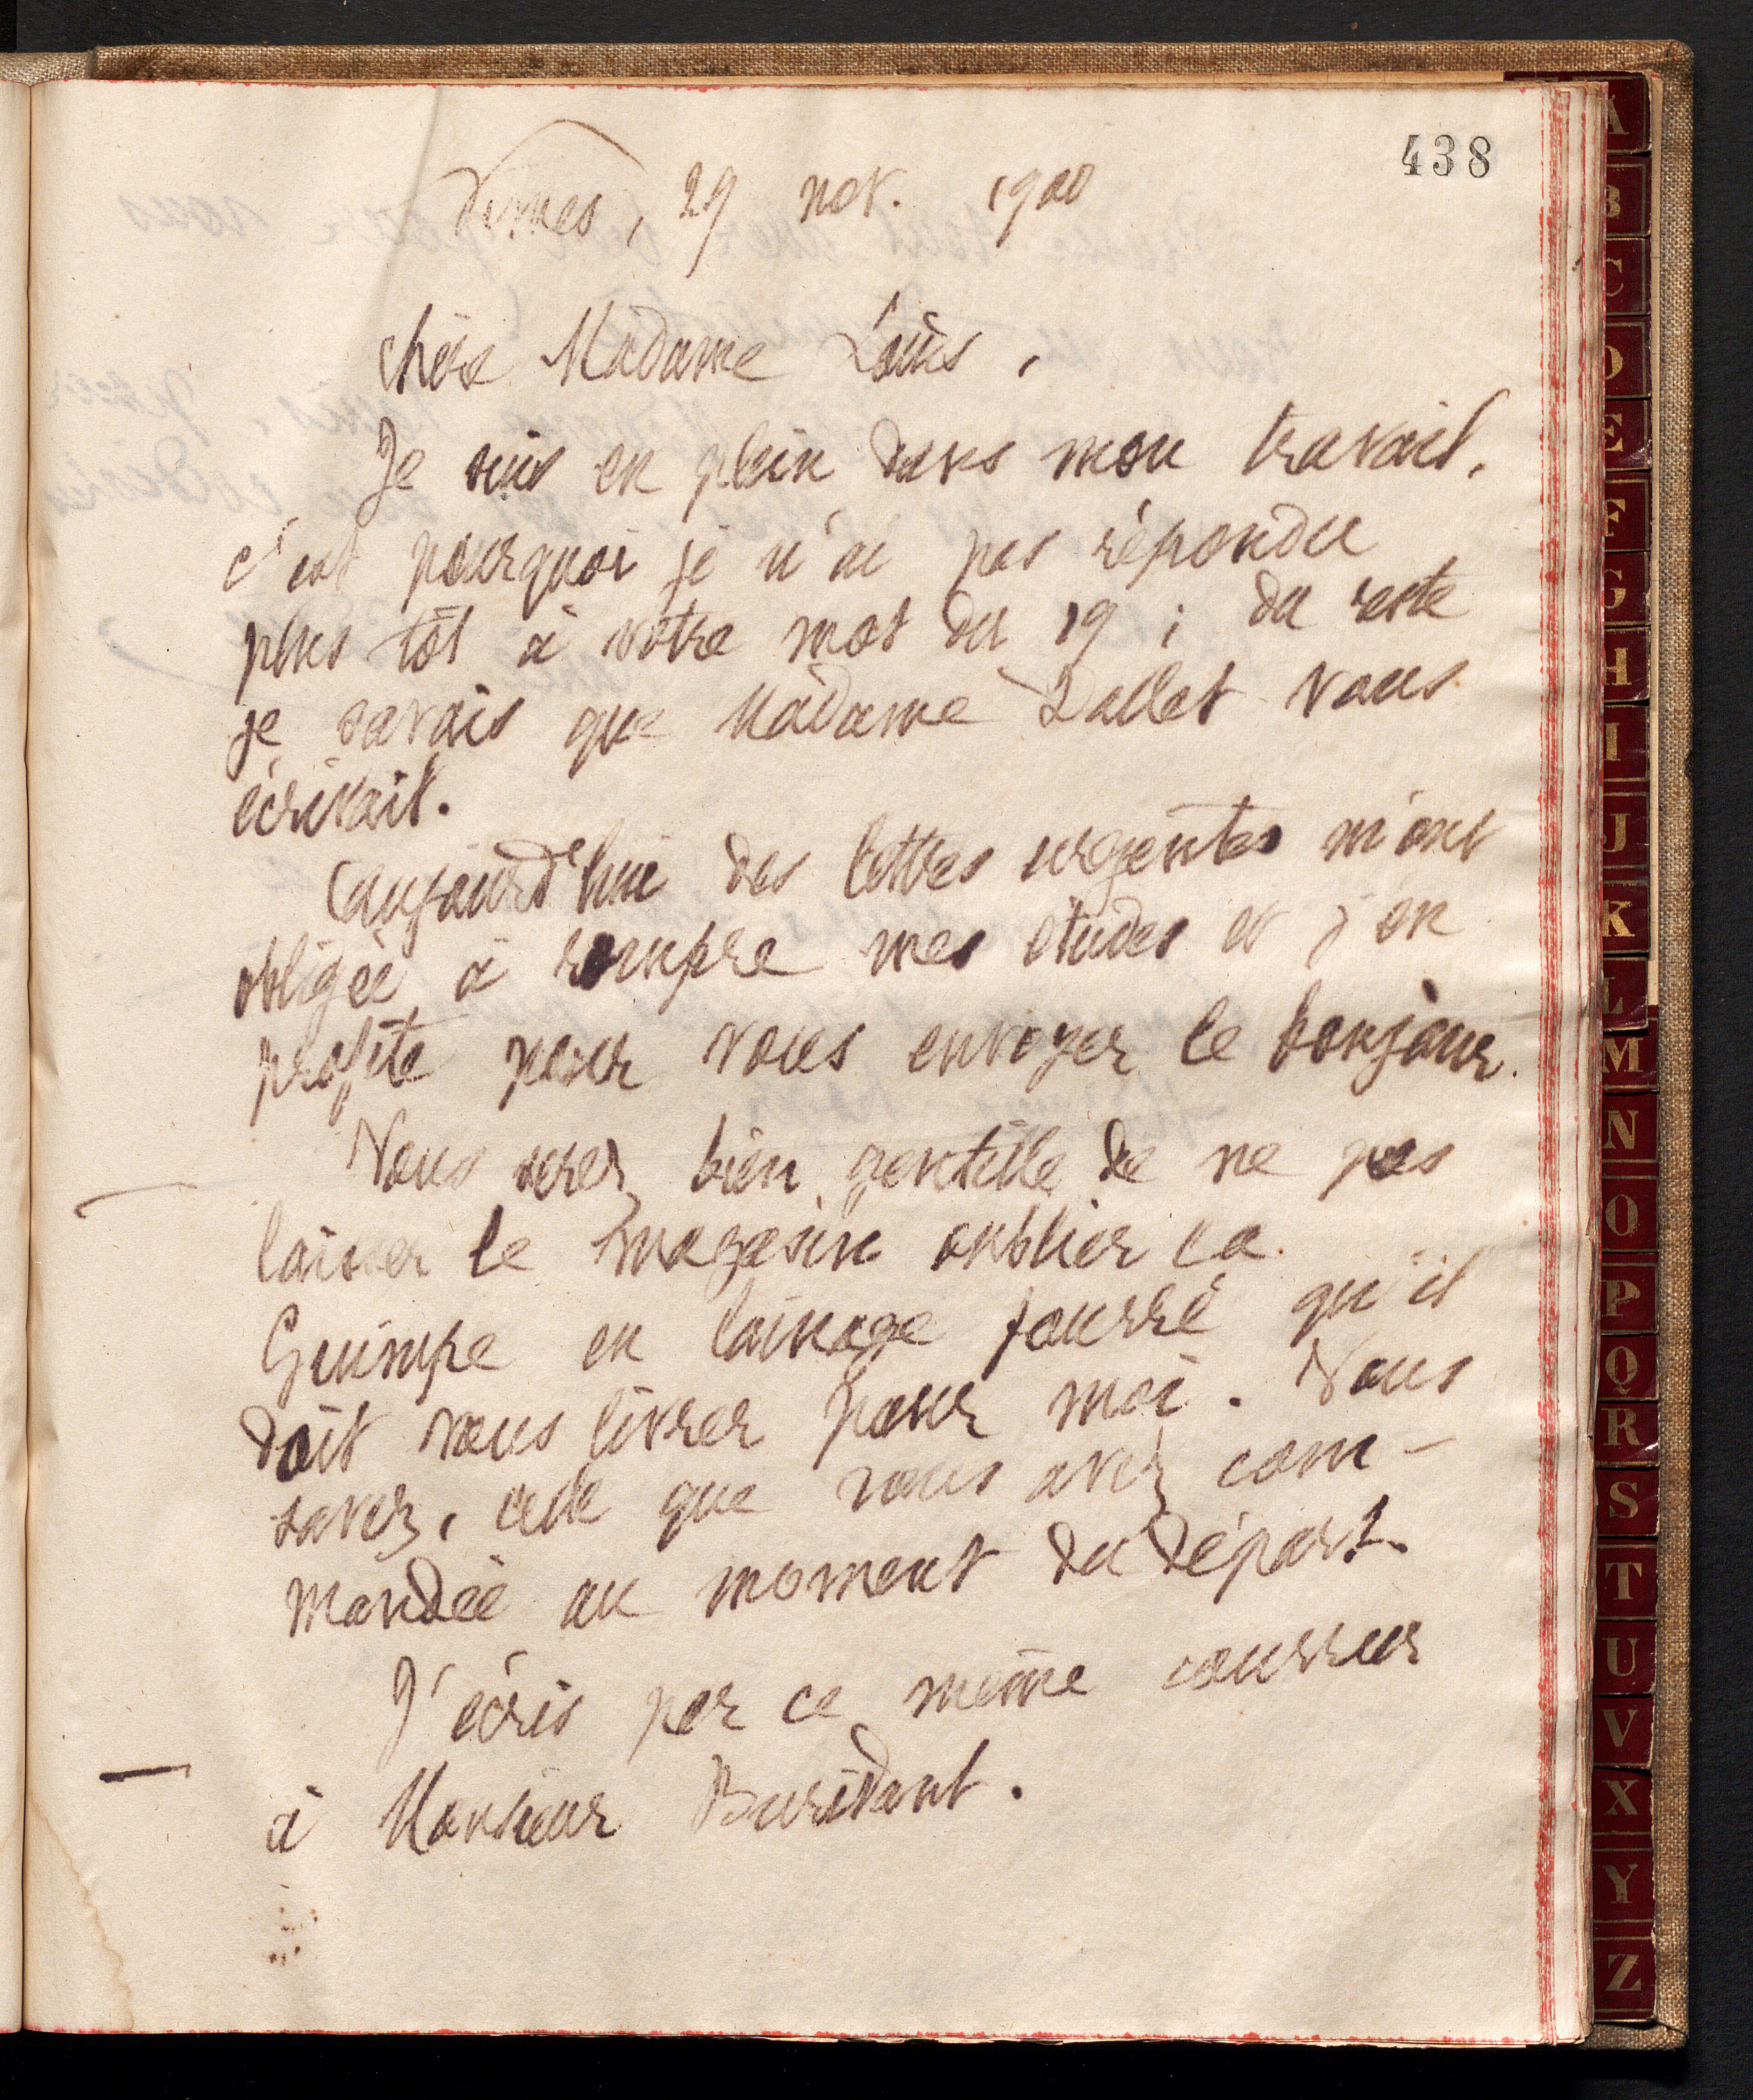 438
Nîmes, 29 nov. 1900
Chère Madame Louis,
Je suis en plein dans mon travail,
c'est pourquoi je n'ai pas répondu
plus tôt à votre mot du 19 ; du reste
je savais que Madame Dallet vous
écrivait.
Aujourd'hui des lettres urgentes m'ont
obligée à rompre mes études et j'en
profite pour vous envoyer le bonjour.
Vous serez bien gentille de ne pas
laisser le magasin oublier la
Guimpe en lainage fourré qu'il
doit vous livrer pour moi. Vous
savez, celle que vous avez com-
mandée au moment du départ.
J'écris par ce même courrier
à Monsieur Buridant.
A
B
C
D
E
F
G
H
I
J
K
L
M
N
O
P
Q
R
S
T
U
V
X
Y
Z